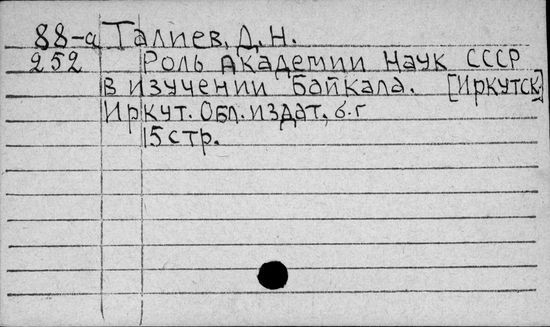 88-а Талиев, Д. Н.
252 Роль Академии Наук СССР
в изучении Байкала. [Иркутск]
Иркут. Обл. издат, б. г
15 стр.